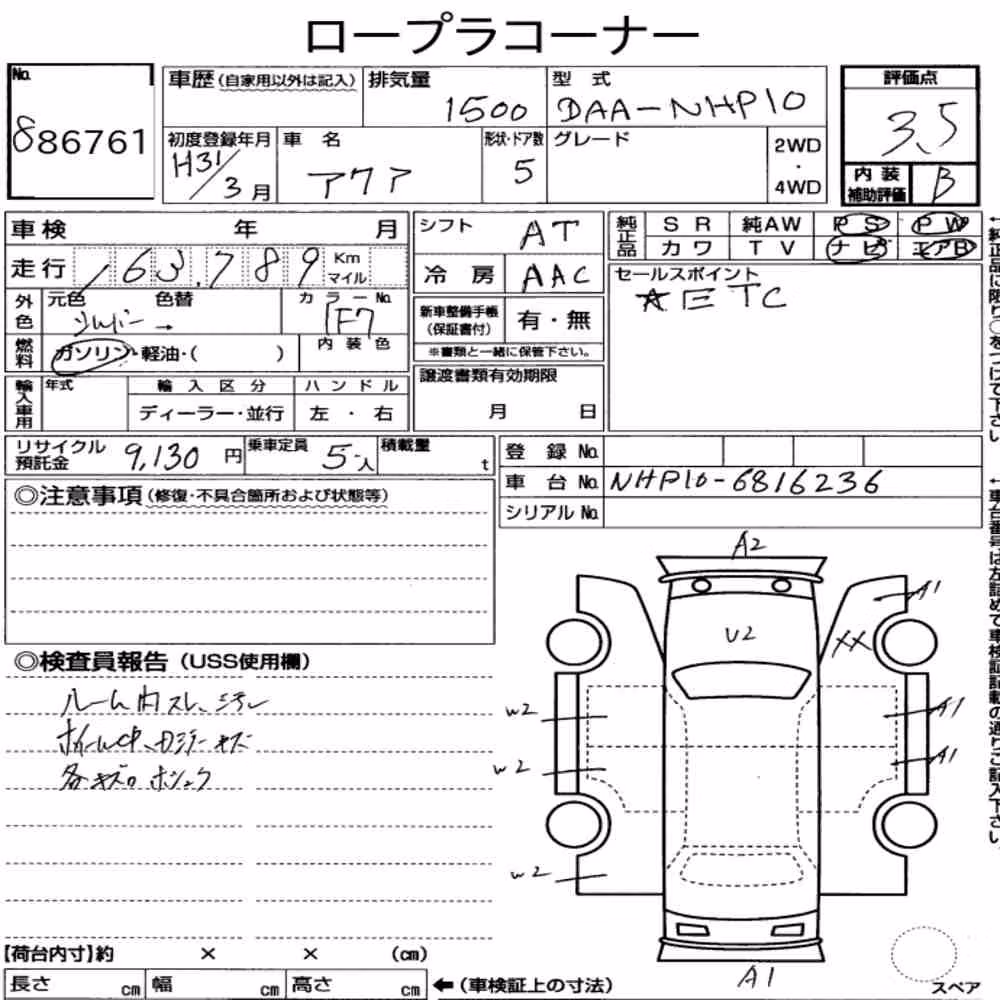 ロープラコーナー
No.
886761
車歴 (自家用以外は記入)
排気量
1500
型式
DAA-NHP10
評価点
3.5
初度登録年月
H31/3月
車名
アクア
形状・ドア数
5
グレード
2WD
・
4WD
内装
補助評価
B
車検 年 月
走行 163,789 Km マイル
シフト
AT
冷房
AAC
純正品
SR 純AW PS PW
カワ TV ナビ エアB
←純正品に限り○をつけて下さい。
セールスポイント
★ETC
外色
元色 色替
シルバー →
カラーNo.
1F7
新車整備手帳
(保証書付)
有・無
※書類と一緒に保管下さい。
燃料
ガソリン・軽油・( )
内装色
輸入車用
年式
輸入区分
ディーラー・並行
ハンドル
左・右
譲渡書類有効期限
月 日
リサイクル
預託金
9,130 円
乗車定員
5人
積載量
t
登録No.
車台No. NHP10-6816236
シリアルNo.
←車台番号は左詰めで車検証記載の通りご記入下さい。
◎注意事項 (修復・不具合箇所および状態等)
◎検査員報告 (USS使用欄)
ルーム内スレ、シミ
各キズ
A2
A1
U2
XX
W2
A1
W2
A1
W2
A1
スペア
【荷台内寸】約 × × (cm)
長さ cm 幅 cm 高さ cm ←(車検証上の寸法)